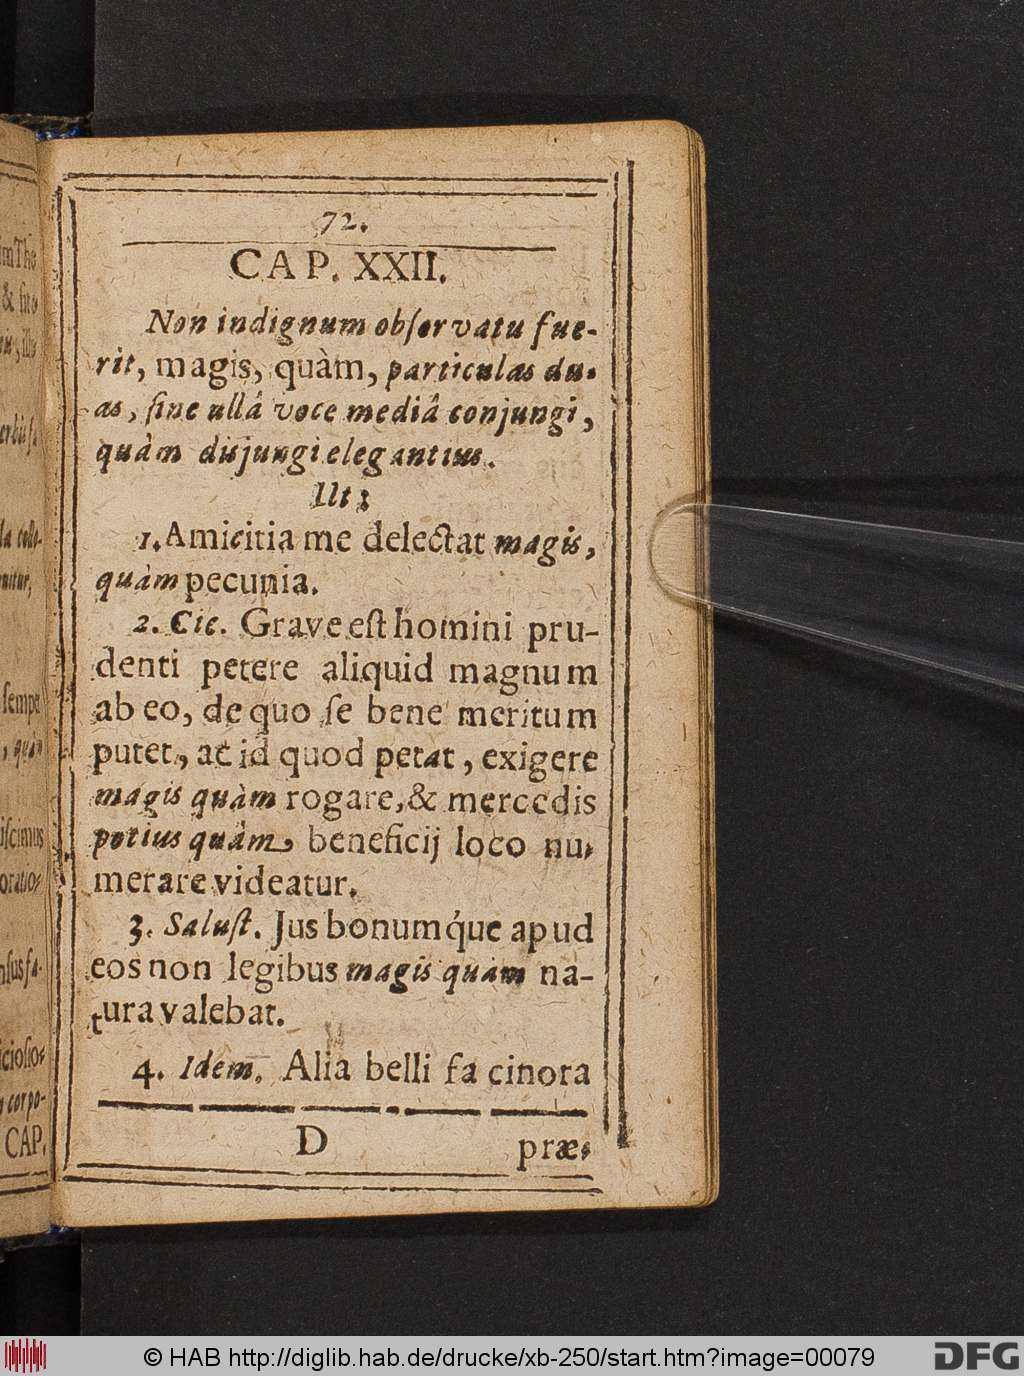 72.
CAP. XXII.
Non indignum obſervatu fue-
rit, magis, quàm, particulas du-
as, ſine ullâ voce mediâ conjungi,
quàm disjungi elegantius.
Ut:
1. Amicitia me delectat magis,
quàm pecunia.
2. Cic. Grave eſt homini pru-
denti petere aliquid magnum
ab eo, de quo ſe bene meritum
putet, ac id quod petat, exigere
magis quàm rogare, & mercedis
potius quàm beneficij loco nu-
merare videatur.
3. Saluſt. Jus bonumq́ue apud
eos non legibus magis quam na-
tura valebat.
4. Idem. Alia belli facinora
D præ-
im The
& ſuo-
ſempe
, quàn
iſcimus
oratio-
nſus ſa-
cioſio-
corpo-
CAP.
© HAB http://diglib.hab.de/drucke/xb-250/start.htm?image=00079
DFG